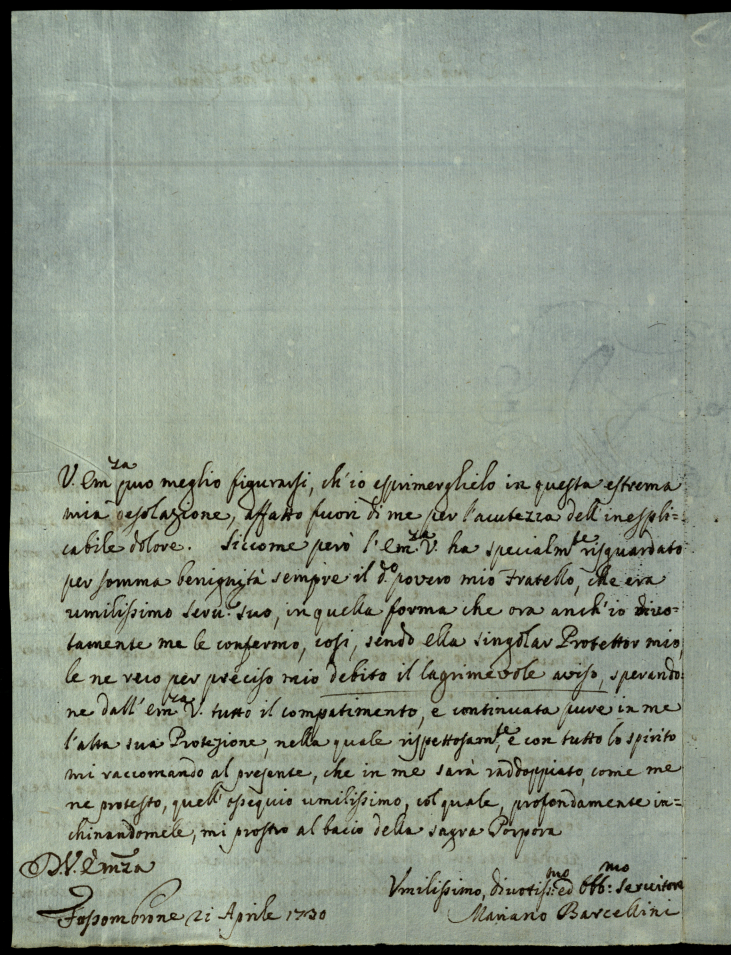 V. Em.za puo meglio figurarsi, ch'io esprimerglielo in questa estrema
mia desolazione, affatto fuori di me per l'acutezza dell'inespli=
cabile dolore. Siccome però l'Em.za V. ha specialm.te risguardato
per somma benignità sempre il d.o povero mio Fratello, che era
umilissimo serv.e suo, in quella forma che ora anch'io divo=
tamente me le confermo, così, sendo ella singolar Protettor mio,
le ne reco per preciso mio debito il lagrimevole aviso, sperando=
ne dall'Em.za V. tutto il compatimento, e continuata pure in me
l'alta sua Protezione, nella quale rispettosam.te, e con tutto lo spirito
mi raccomando al presente, che in me sarà raddoppiato, come me
ne protesto, quell'ossequio umilissimo, col quale, profondamente in=
chinandomele, mi prostro al bacio della sagra Porpora
D. V. Em.za
Umilissimo, divotiss.mo ed obb.mo Servitore
Fossombrone 21 Aprile 1730
Mariano Barcellini